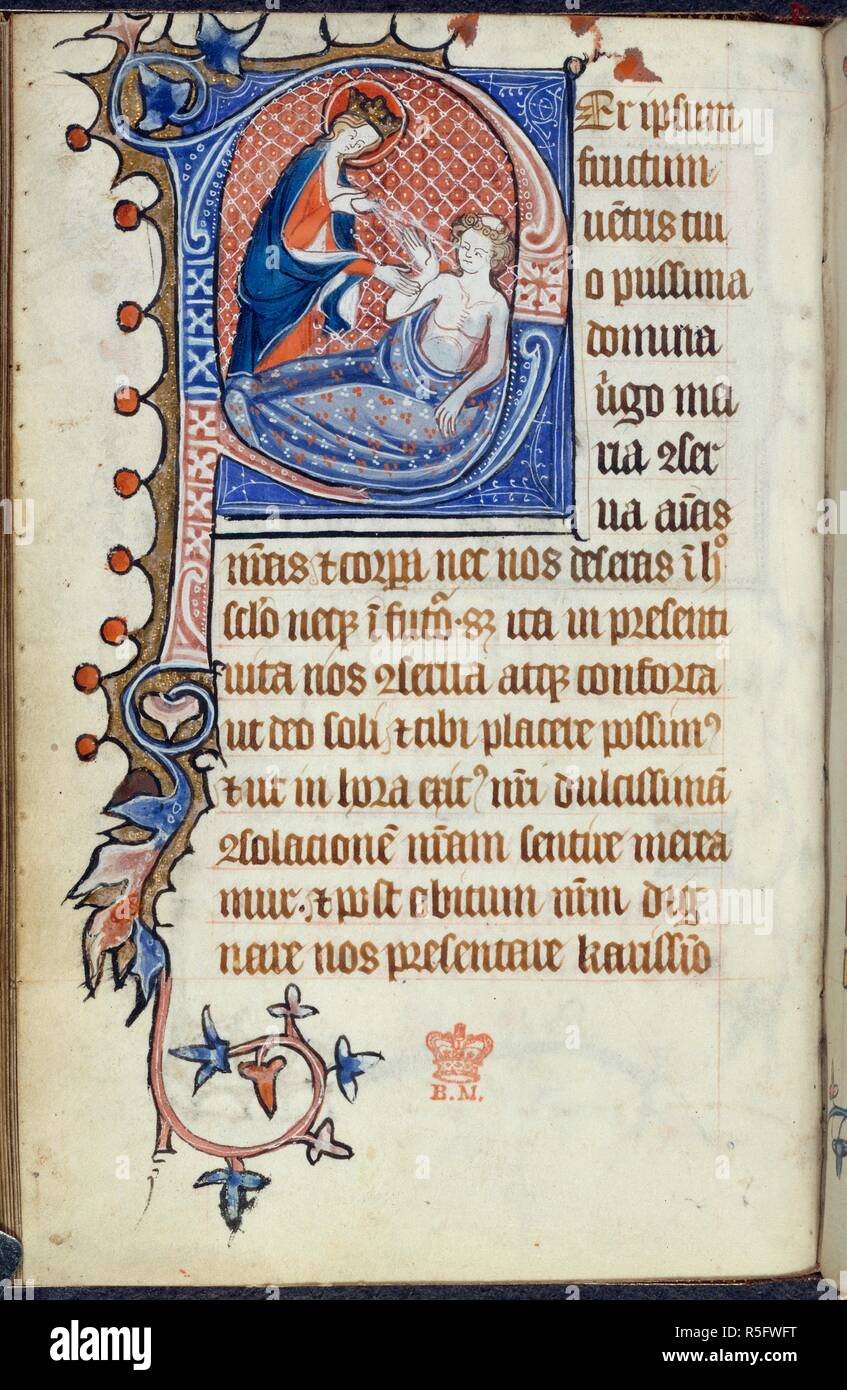 Er ipsum
fructum
uẽtris tui
o piissima
domina
uͥgo ma
ria ꝯser
ua aĩas
nr̃as ⁊ corꝑa nec nos deseras ĩ hͦ
sclo neqꝫ ĩ futo · sꝫ ita in presenti
uita nos ꝯserua atqꝫ conforta
ut deo soli ⁊ tibi placere possimꝰ
⁊ ut in hora exitꝰ nr̃i dulcissimã
ꝯsolacionẽ nr̃am sentire merea
mur · ⁊ post obitum nr̃m dig
nare nos presentare karissimo
B.M.
alamy
Image ID: R5FWFT
www.alamy.com